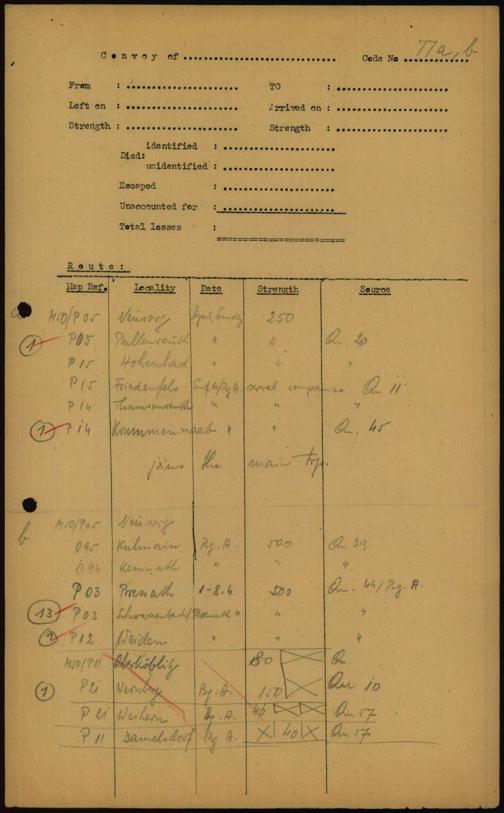 77a, b
Convoy of .................................... Code No ................
From : .......................... TO : ..........................
Left on : .......................... Arrived on : ..........................
Strength : .......................... Strength : ..........................
identified : ..........................
Died:
unidentified : ..........................
Escaped : ..........................
Unaccounted for : ..........................
Total losses : ==========================
Route:
Map Ref. Locality Date Strength Source
a M50/P05 Neusorg April, 250
1 P05 Pullenreuth " " Qu. 20
P15 Hohenhard " " "
P15 Friedenfels several companies Qu 11
P14 Thumsenreuth " " "
1 P14 Krummennaab " " Qu. 45
joins the main trsp.
b M50/P05 Neusorg
O95 Kulmain Bg. A. 500 Qu 39
O94 Kemnath " " "
P03 Pressath 1-8.4. 500 Qu. 44/Bg. A.
13 P03 Schwarzenbach/Pressath " " "
1 P12 Weiden " " "
M50/P11 Oberköblitz 180 Qu
1 P21 Wernberg Bg. A. 150 Qu 10
P21 Weihern Bg. A. 40 Qu 57
P11 Damelsdorf Bg A. 40 Qu 57